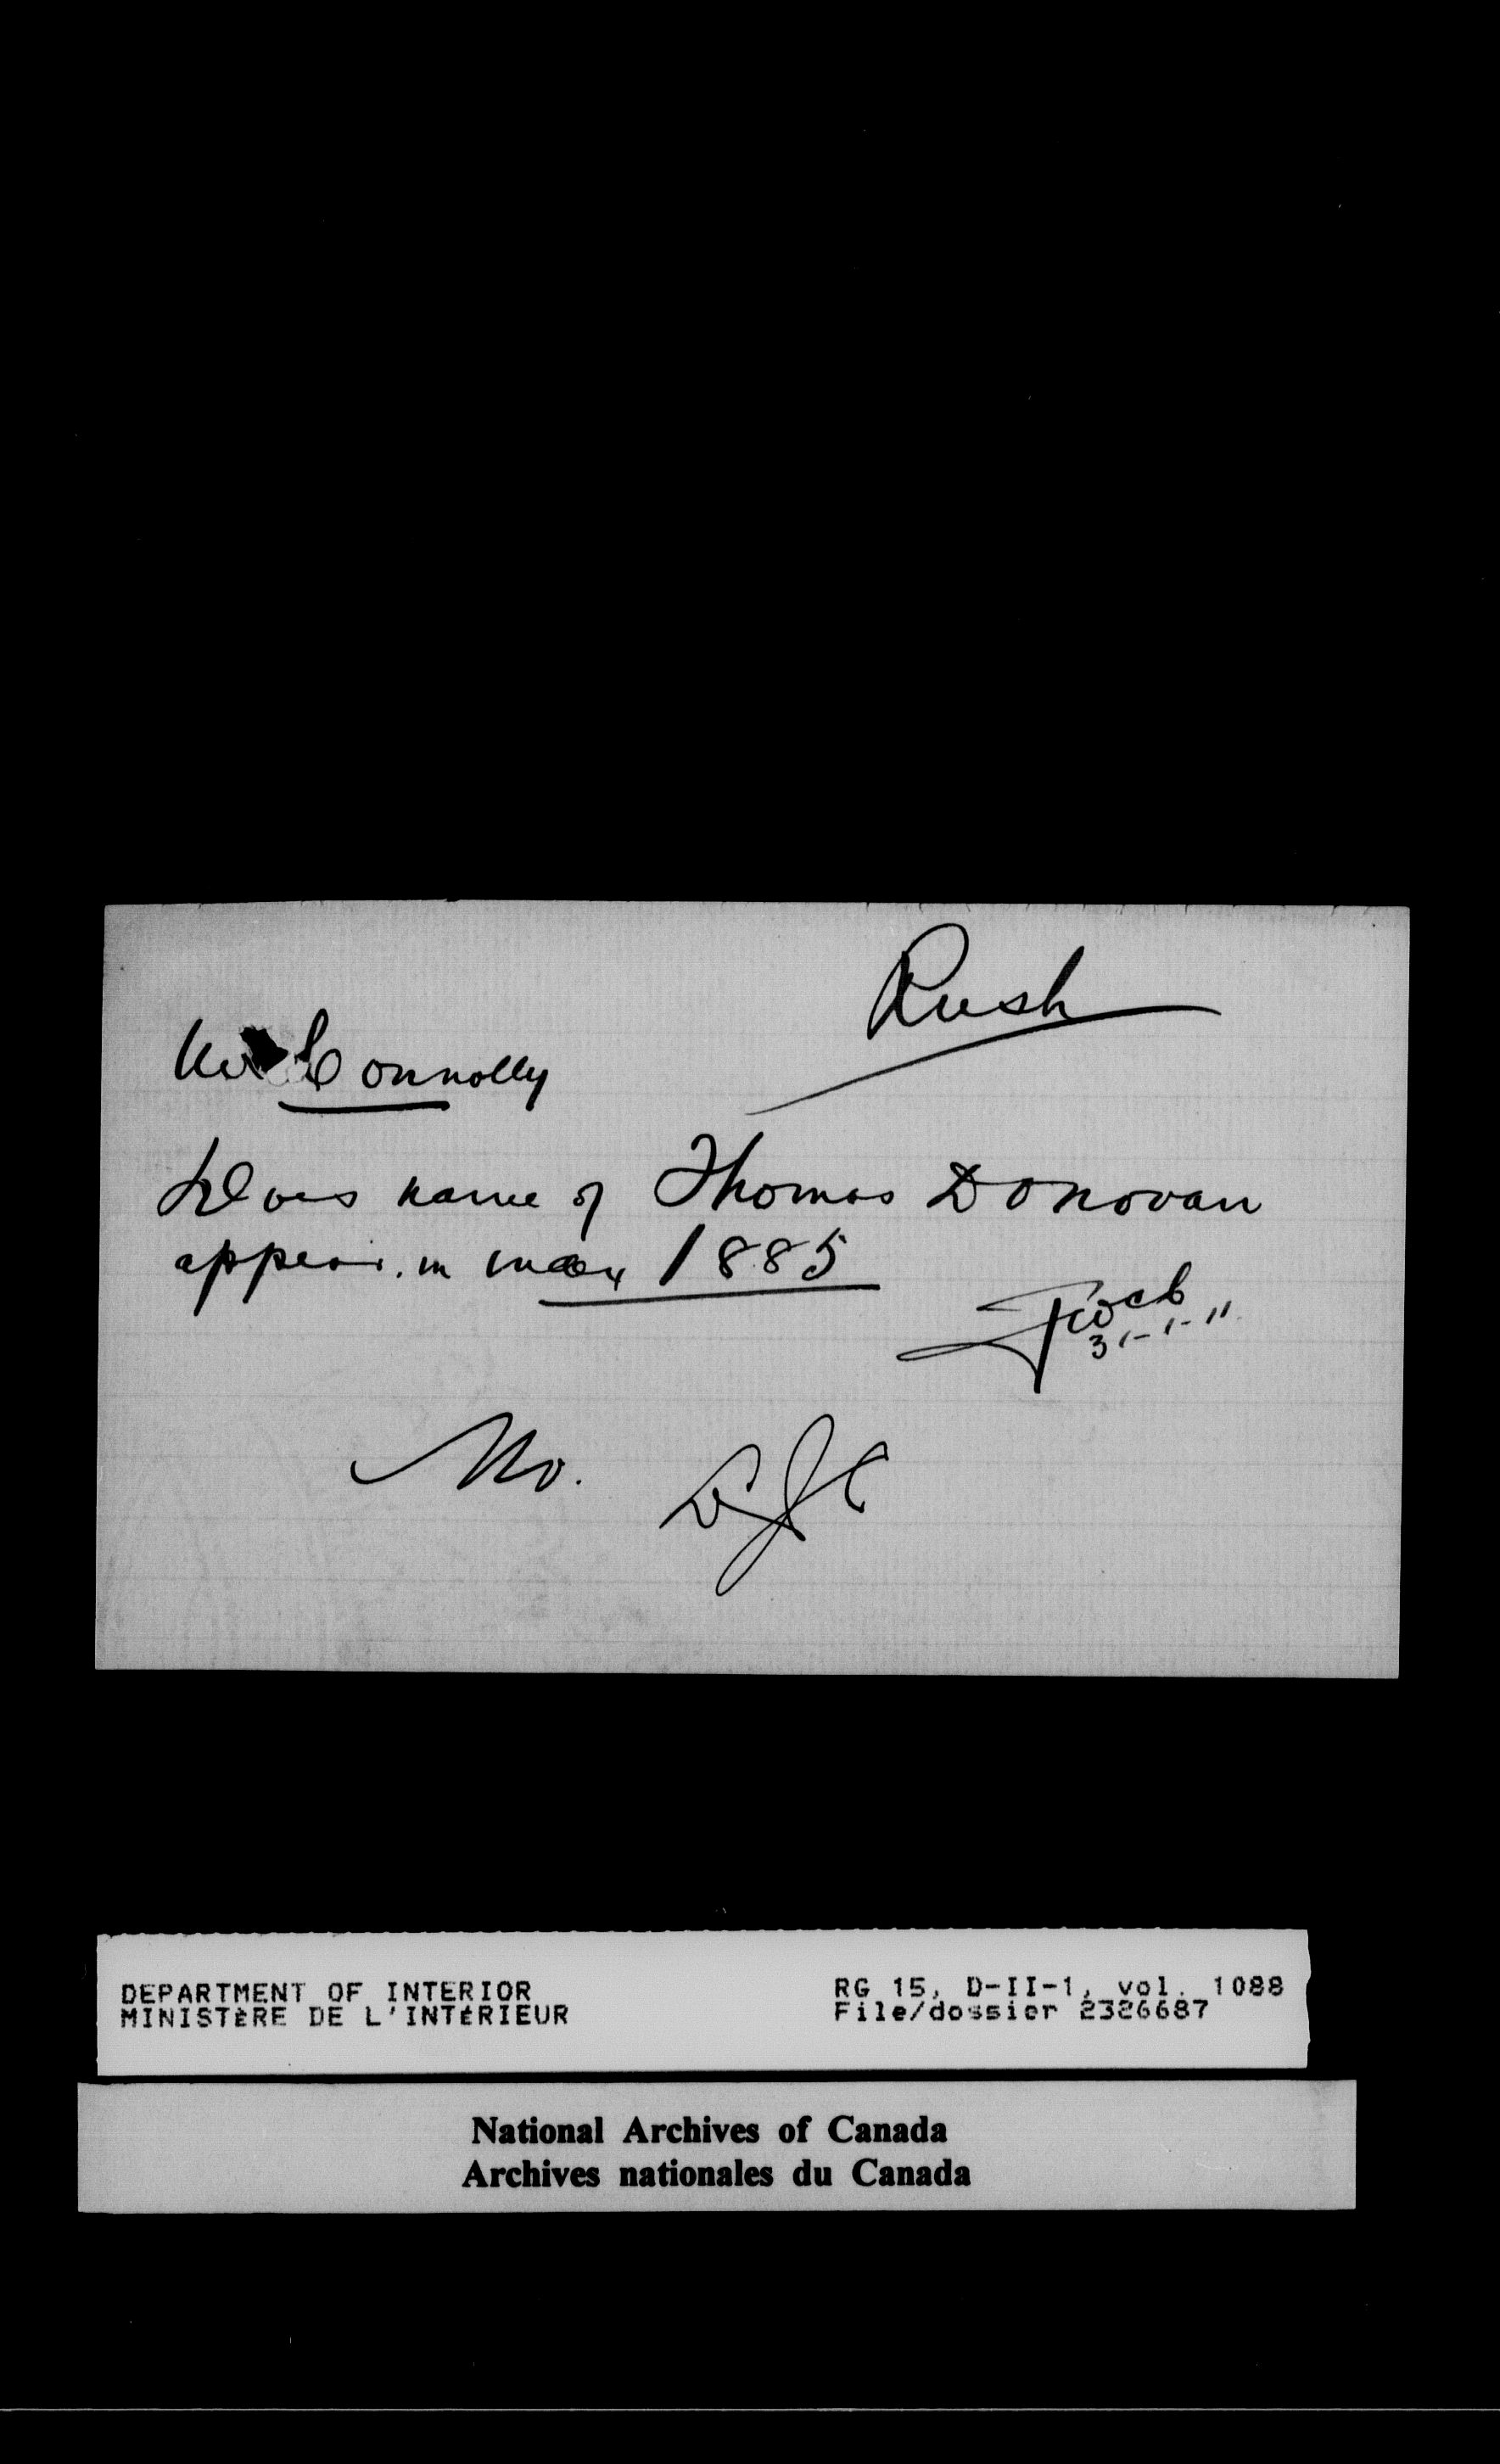 Rush
Mr Connolly
Does name of Thomas Donovan
appear in index 1885
31-1-11
No. DJC
DEPARTMENT OF INTERIOR
MINISTÈRE DE L'INTÉRIEUR
RG 15, D-II-1, vol. 1088
File/dossier 2326687
National Archives of Canada
Archives nationales du Canada